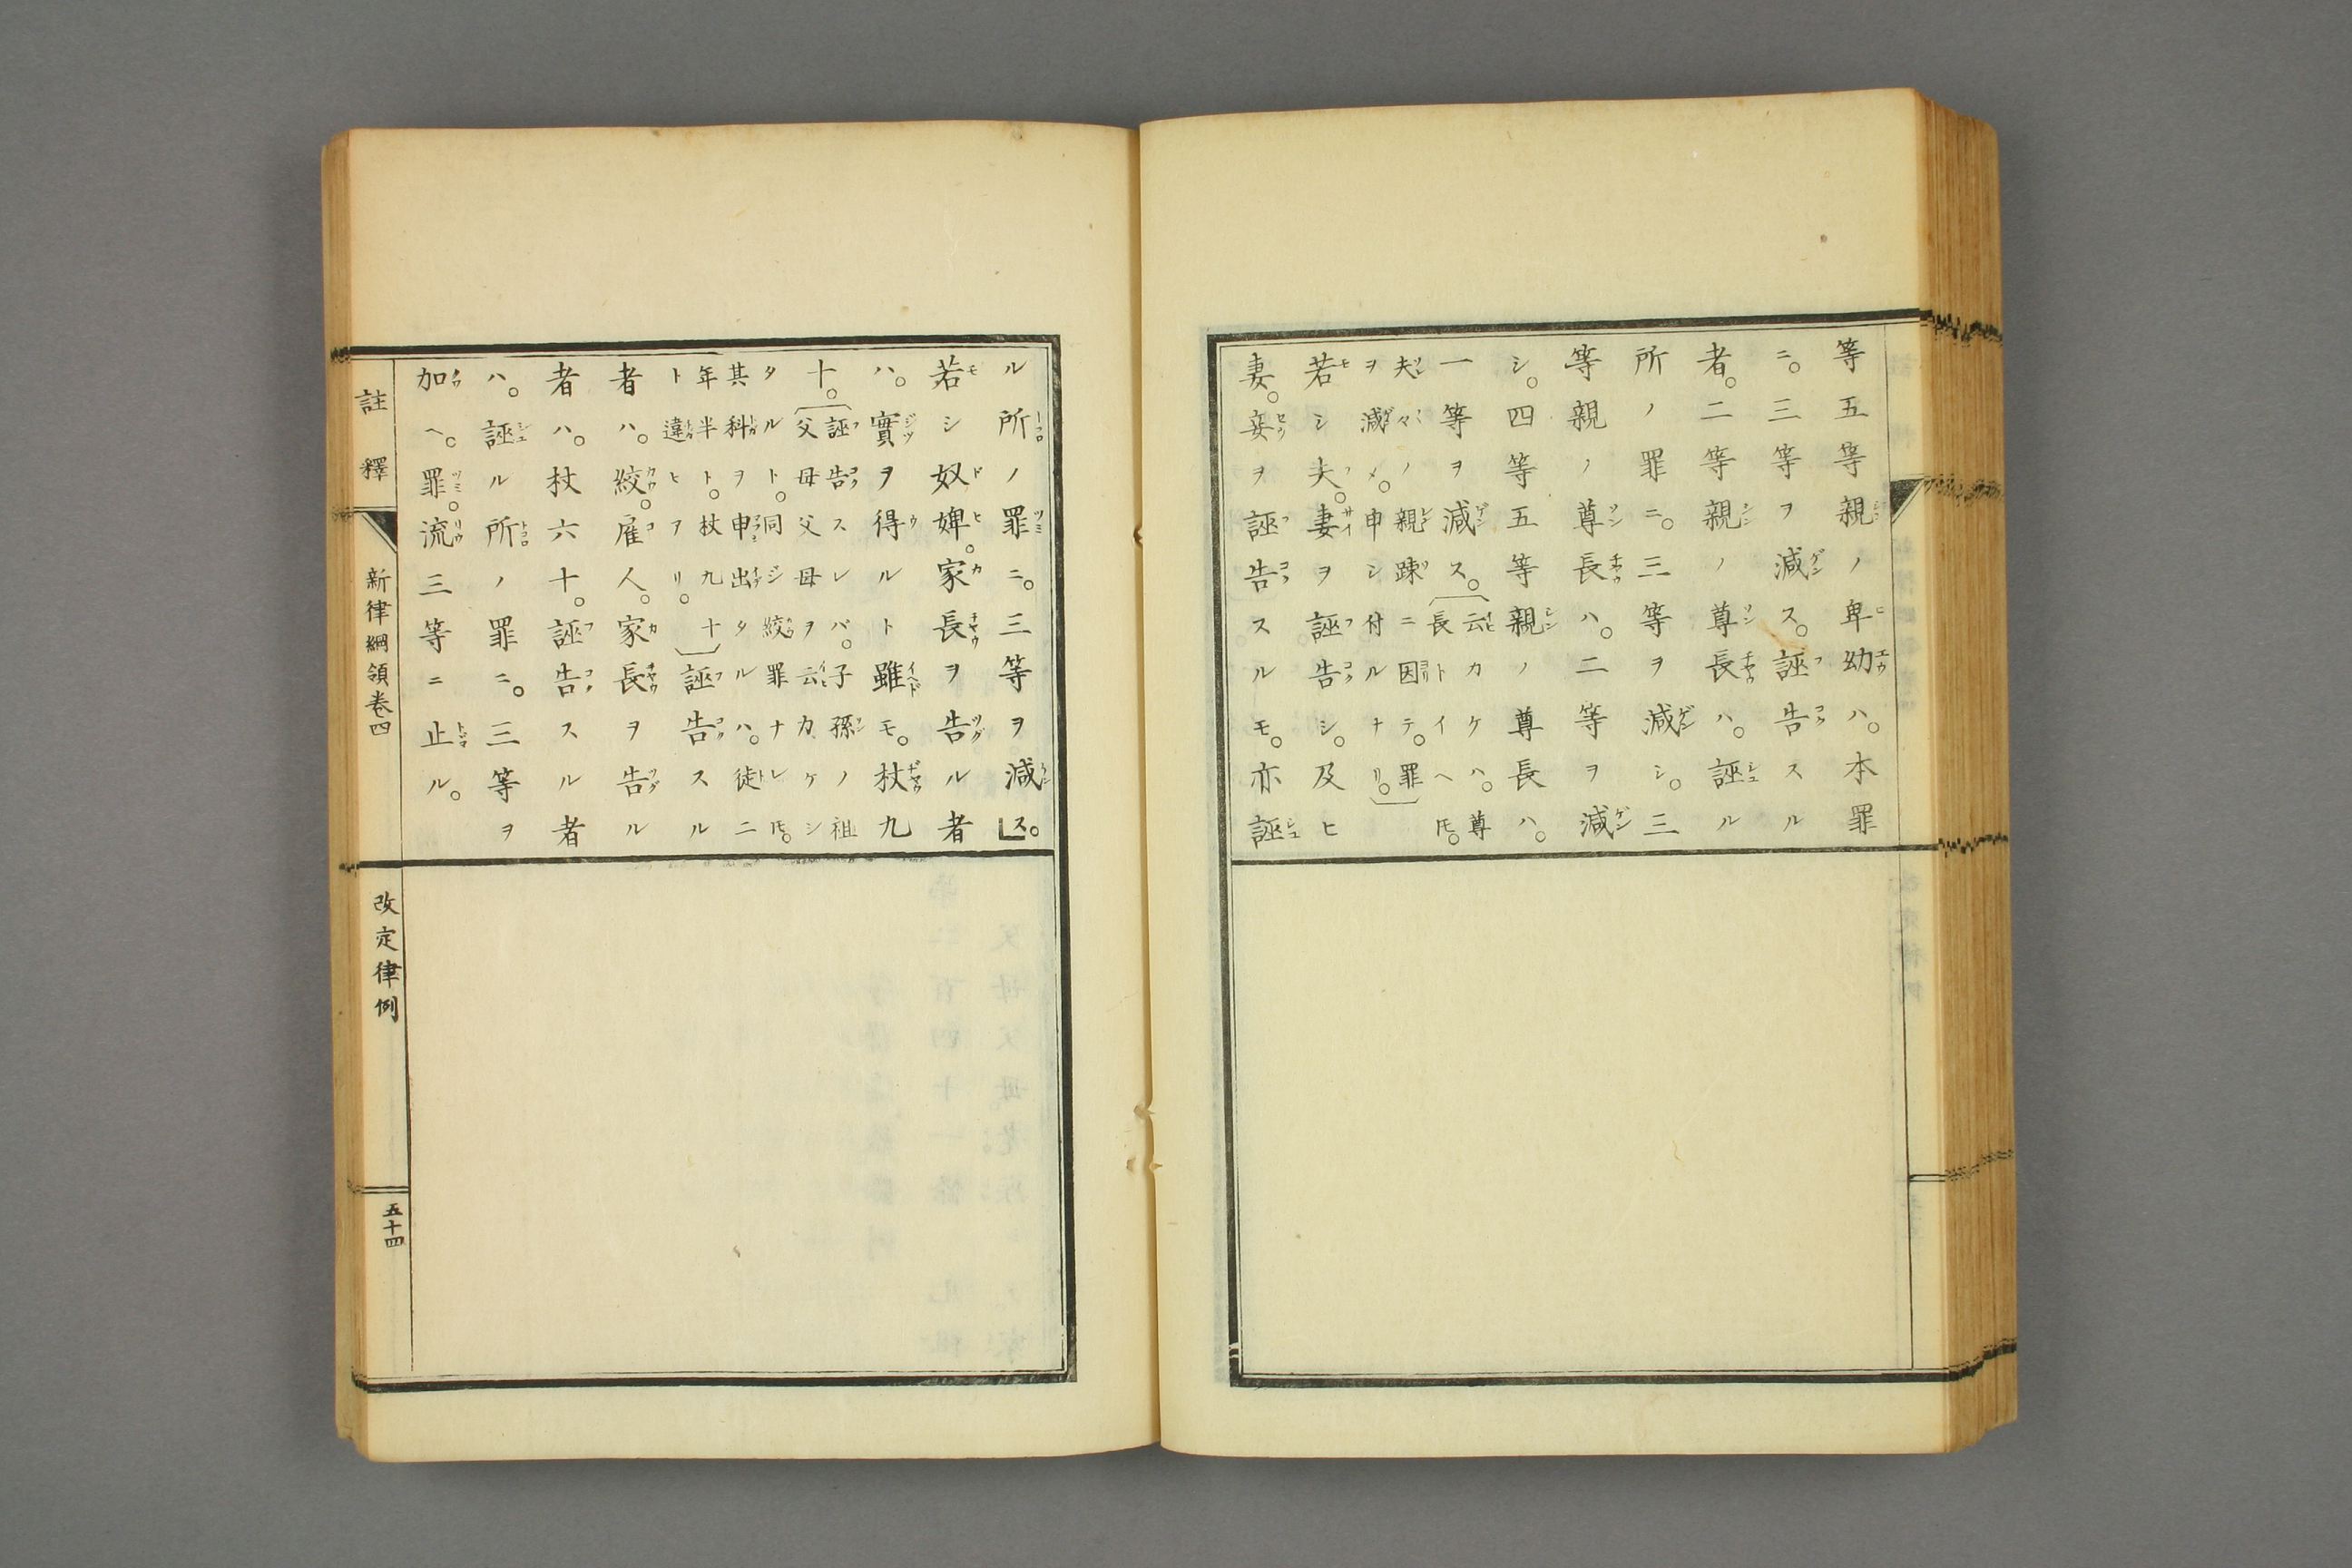 等五等親ノ卑幼ハ。本罪
ニ。三等ヲ減ス。誣告スル
者。二等親ノ尊長ハ。誣ル
所ノ罪ニ。三等ヲ減シ。三
等親ノ尊長ハ。二等ヲ減
シ。四等五等親ノ尊長ハ。
一等ヲ減ス。
云カケハ。尊
長トイヘ𪜈。
夫々ノ親踈ニ因テ。罪
ヲ減メ。申シ付ルナリ。
若シ夫。妻ヲ誣告シ。及ヒ
妻。妾ヲ誣告スルモ。亦誣
ル所ノ罪ニ。三等ヲ減ス。
若シ奴婢。家長ヲ告ル者
ハ。實ヲ得ルト雖モ。杖九
十。
誣告スレバ。子孫ノ祖
父母父母ヲ云カケシ
タルト。同ジ絞罪ナレ𪜈。
其科ヲ申出タルハ。徒二
年半ト。杖九十
ト違ヒアリ。
誣告スル
者ハ。絞。雇人。家長ヲ告ル
者ハ。杖六十。誣告スル者
ハ。誣ル所ノ罪ニ。三等ヲ
加ヘ。罪。流三等ニ止ル。
註釋
新律綱領卷四
改定律例
五十四